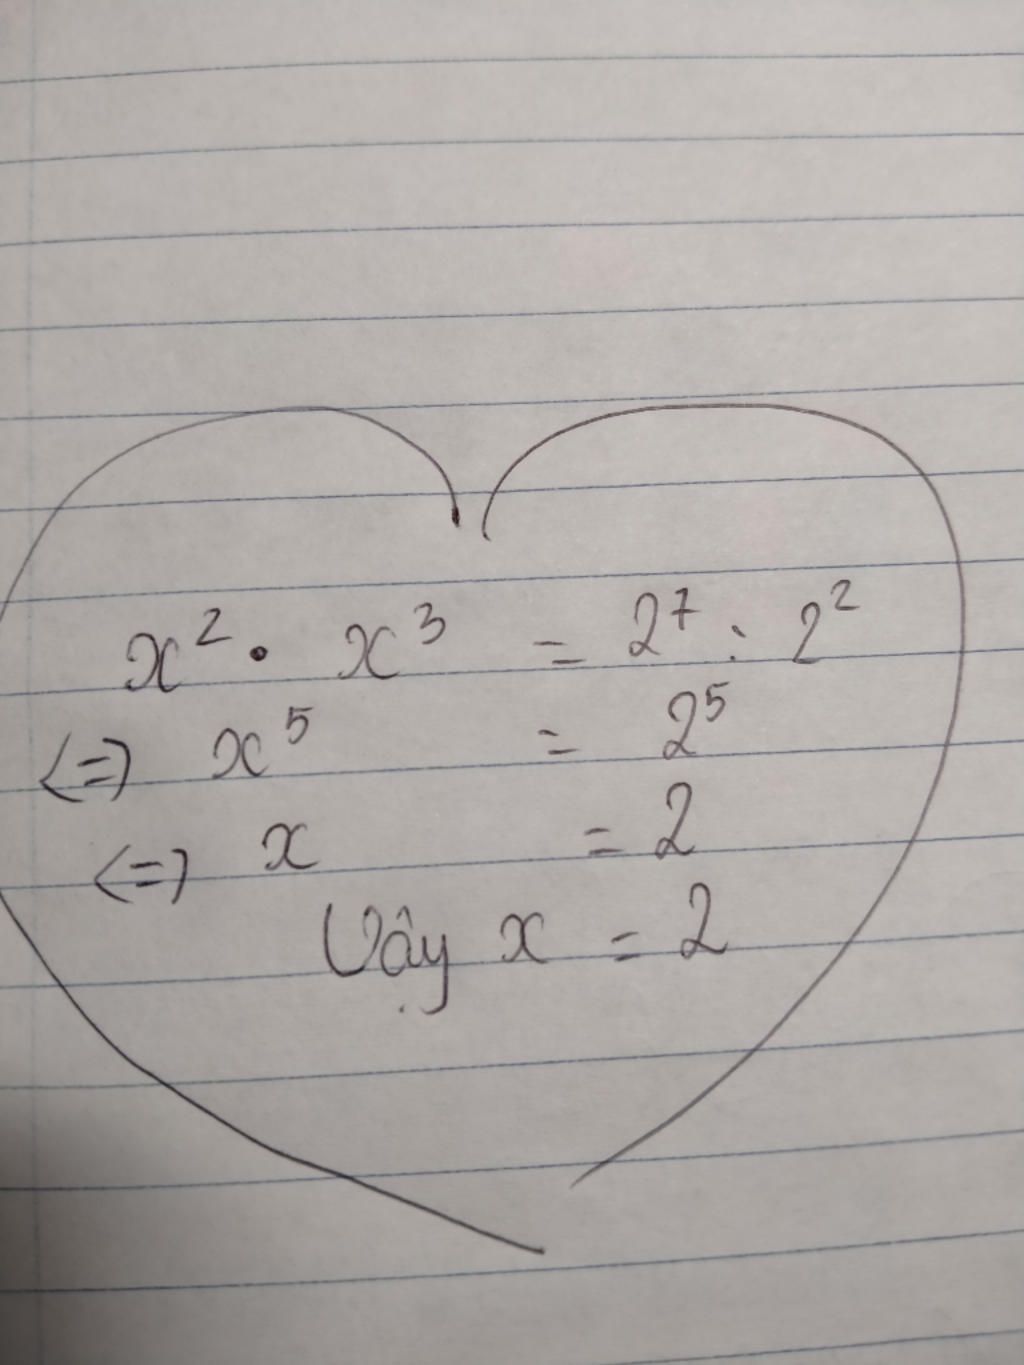 x² • x³ = 2⁷ : 2²
<=> x⁵ = 2⁵
<=> x = 2
Vậy x = 2